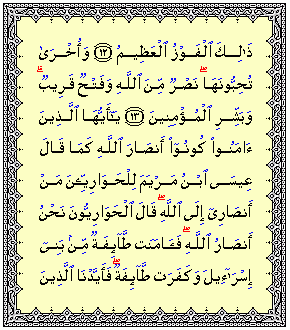 ذَٰلِكَ ٱلْفَوْزُ ٱلْعَظِيمُ ﴿١٢﴾ وَأُخْرَىٰ
تُحِبُّونَهَا ۖ نَصْرٌ مِّنَ ٱللَّهِ وَفَتْحٌ قَرِيبٌ ۗ
وَبَشِّرِ ٱلْمُؤْمِنِينَ ﴿١٣﴾ يَـٰٓأَيُّهَا ٱلَّذِينَ
ءَامَنُوا۟ كُونُوٓا۟ أَنصَارَ ٱللَّهِ كَمَا قَالَ
عِيسَى ٱبْنُ مَرْيَمَ لِلْحَوَارِيِّـۧنَ مَنْ
أَنصَارِىٓ إِلَى ٱللَّهِ ۖ قَالَ ٱلْحَوَارِيُّونَ نَحْنُ
أَنصَارُ ٱللَّهِ ۖ فَـَٔامَنَت طَّآئِفَةٌ مِّنۢ بَنِىٓ
إِسْرَٰٓءِيلَ وَكَفَرَت طَّآئِفَةٌ ۖ فَأَيَّدْنَا ٱلَّذِينَ